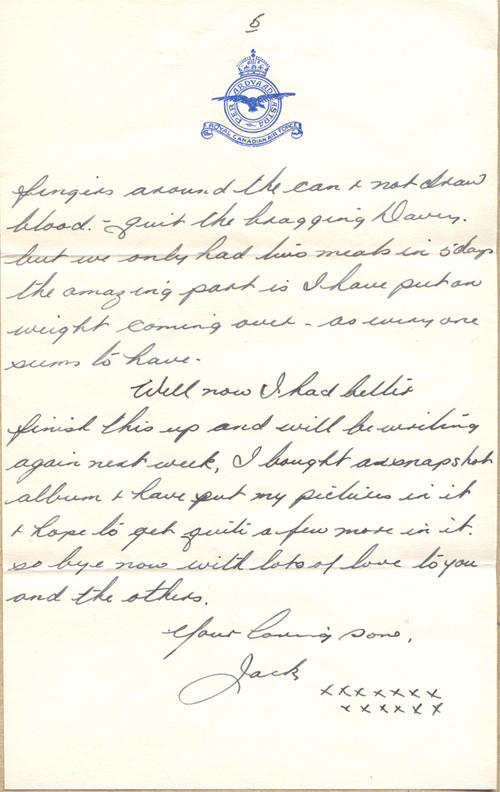 5
PER ARDVA AD ASTRA
ROYAL CANADIAN AIR FORCE
fingers around the can + not draw
blood. - quit the bragging Davey.
but we only had two meals in 5 days
the amazing part is I have put on
weight coming over - as every one
seems to have.
Well now I had better
finish this up and will be writing
again next week, I bought a snapshot
album + have put my pictures in it
+ hope to get quite a few more in it.
so bye now with lots of love to you
and the others.
Your loving son,
Jack
xxxxxxx
xxxxxx